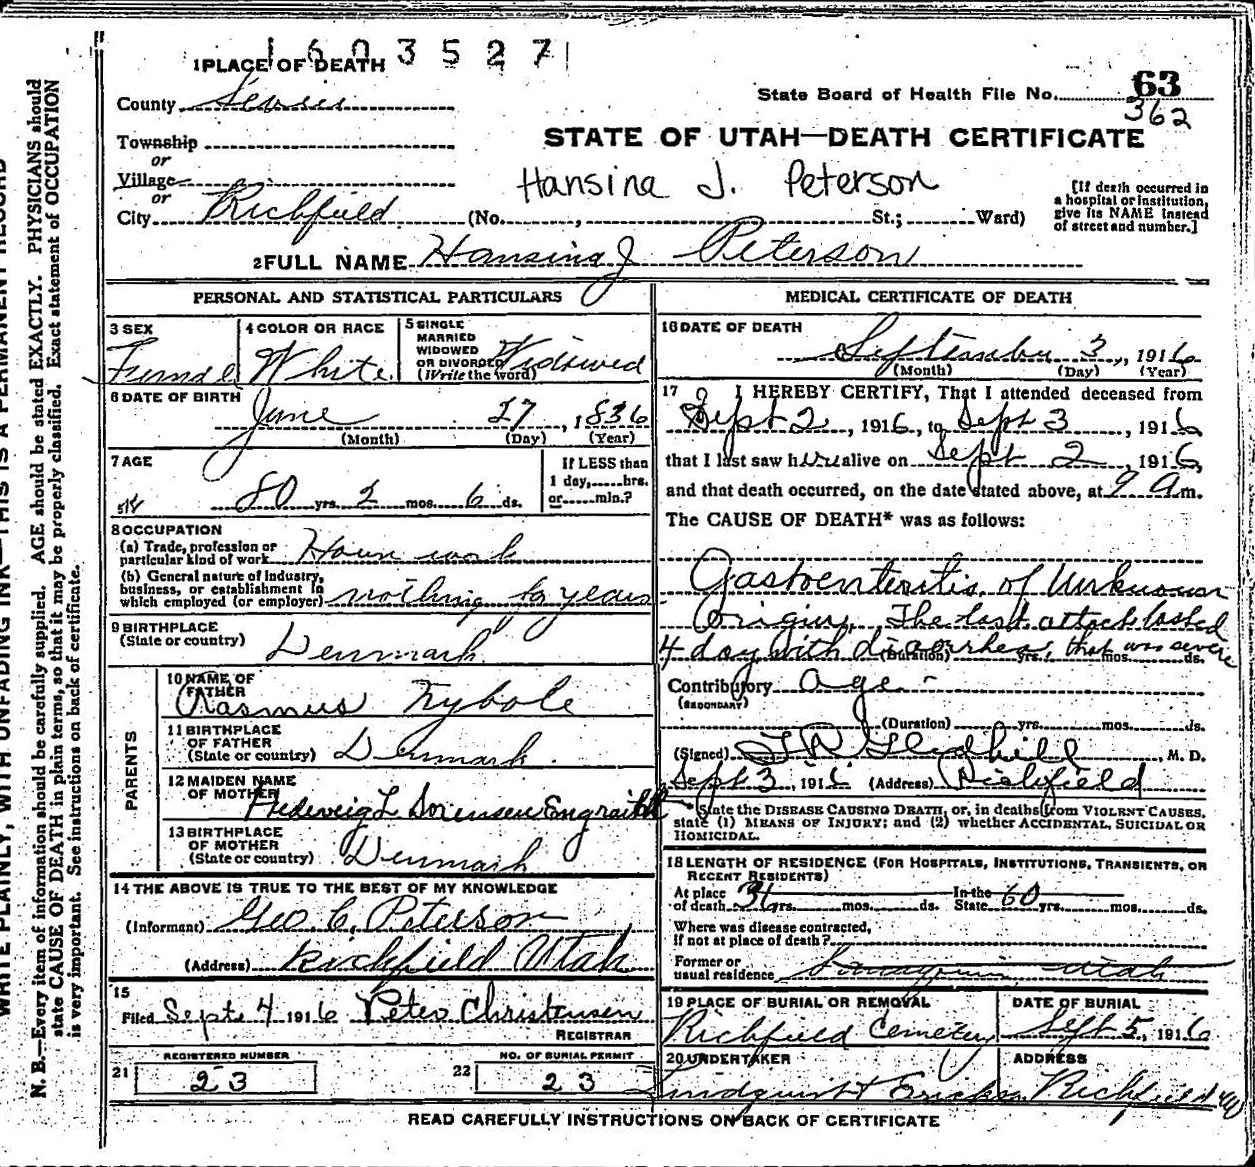 1603527
1 PLACE OF DEATH
County Sevier
State Board of Health File No. 63
362
Township
or
Village
or
STATE OF UTAH—DEATH CERTIFICATE
Hansina J. Peterson
City Richfield (No. , St.; Ward)
[If death occurred in
a hospital or institution,
give its NAME instead
of street and number.]
2 FULL NAME Hansina J Peterson
PERSONAL AND STATISTICAL PARTICULARS
3 SEX
Female
4 COLOR OR RACE
White
5 SINGLE
MARRIED
WIDOWED
OR DIVORCED
(Write the word)
Widowed
6 DATE OF BIRTH
June 27, 1836
(Month) (Day) (Year)
7 AGE
80 yrs. 2 mos. 6 ds.
If LESS than
1 day, hrs.
or min.?
8 OCCUPATION
(a) Trade, profession or
particular kind of work House work
(b) General nature of industry,
business, or establishment in
which employed (or employer) nothing for years
9 BIRTHPLACE
(State or country) Denmark
PARENTS
10 NAME OF
FATHER
Rasmus Nybole
11 BIRTHPLACE
OF FATHER
(State or country) Denmark
12 MAIDEN NAME
OF MOTHER Hedevig L Sorensen
13 BIRTHPLACE
OF MOTHER
(State or country) Denmark
14 THE ABOVE IS TRUE TO THE BEST OF MY KNOWLEDGE
(Informant) Geo. C. Peterson
(Address) Richfield Utah
15
Filed Sept 4 1916 Peter Christensen
REGISTRAR
REGISTERED NUMBER
21 23
NO. OF BURIAL PERMIT
22 23
MEDICAL CERTIFICATE OF DEATH
16 DATE OF DEATH
September 3, 1916
(Month) (Day) (Year)
17 I HEREBY CERTIFY, That I attended deceased from
Sept 2, 1916, to Sept 3, 1916
that I last saw her alive on Sept 2, 1916,
and that death occurred, on the date stated above, at 9 a m.
The CAUSE OF DEATH* was as follows:
Gastroenteritis of Unknown
Origin. The last attack lasted
4 day with diaorrhea, that was severe
(Duration) yrs. mos. ds.
Contributory age
(SECONDARY)
(Duration) yrs. mos. ds.
(Signed) T R Gledhill, M. D.
Sept 3, 1916 (Address) Richfield
*State the DISEASE CAUSING DEATH, or, in deaths from VIOLENT CAUSES,
state (1) MEANS OF INJURY; and (2) whether ACCIDENTAL, SUICIDAL OR
HOMICIDAL.
18 LENGTH OF RESIDENCE (FOR HOSPITALS, INSTITUTIONS, TRANSIENTS, OR
RECENT RESIDENTS)
At place
of death 31 yrs. mos. ds. In the
State 60 yrs. mos. ds.
Where was disease contracted,
If not at place of death?
Former or
usual residence Utah
19 PLACE OF BURIAL OR REMOVAL
Richfield Cemetery
DATE OF BURIAL
Sept 5, 1916
20 UNDERTAKER
Lindquist Erickson
ADDRESS
Richfield
READ CAREFULLY INSTRUCTIONS ON BACK OF CERTIFICATE
WRITE PLAINLY, WITH UNFADING INK—THIS IS A PERMANENT RECORD
N. B.—Every item of information should be carefully supplied. AGE should be stated EXACTLY. PHYSICIANS should
state CAUSE OF DEATH in plain terms, so that it may be properly classified. Exact statement of OCCUPATION
is very important. See instructions on back of certificate.